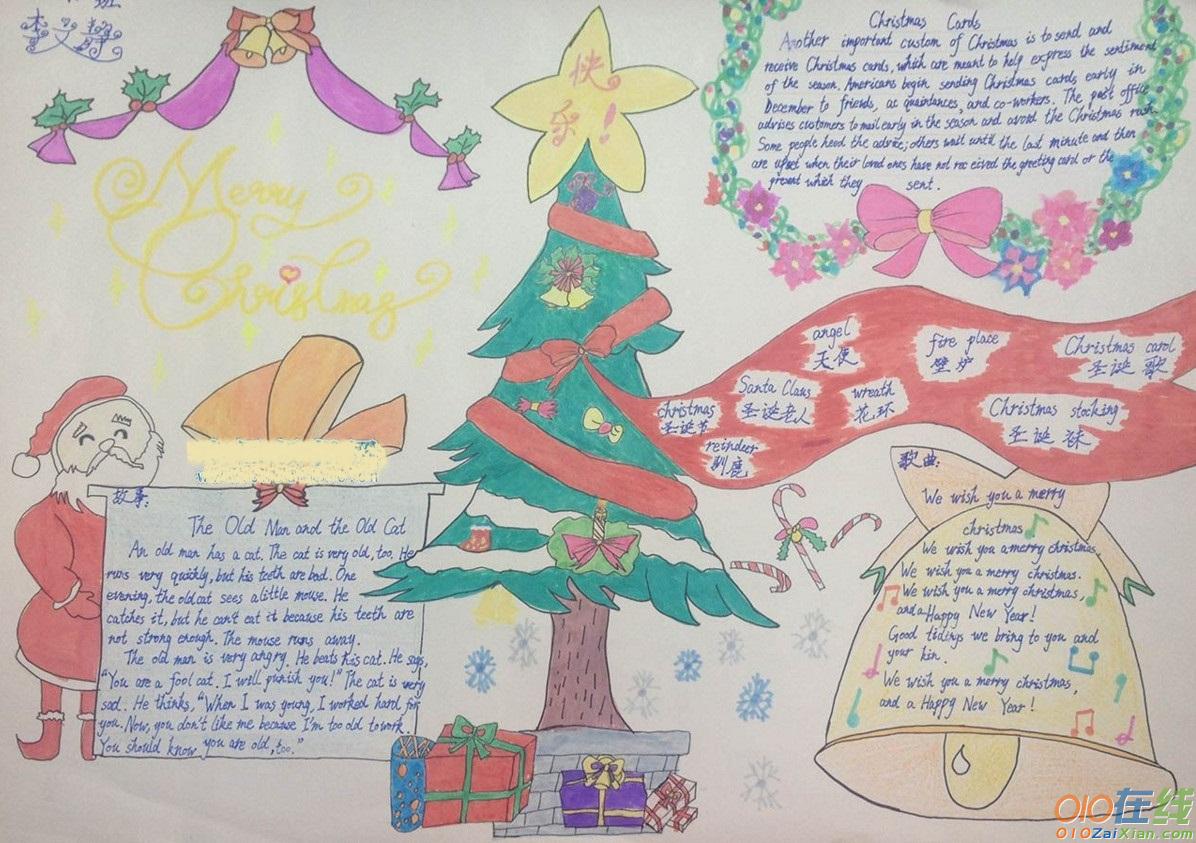 班
快
乐!
Merry
Christmas
Christmas Cards
Another important custom of Christmas is to send and
receive Christmas cards, which are meant to help express the sentiment
of the season. Americans begin sending Christmas cards early in
December to friends, ac quaintances, and co-workers. The post office
advises customers to mail early in the season and avoid the Christmas rush.
Some people heed the advice; others wait until the last minute and then
are upset when their loved ones have not received the greeting card or the
present which they sent.
angel
天使
fire place
壁炉
Christmas carol
圣诞歌
Santa Claus
圣诞老人
wreath
花环
christmas
圣诞节
Christmas stocking
圣诞袜
reindeer
驯鹿
故事:
The Old Man and the Old Cat
An old man has a cat. The cat is very old, too. He
runs very quickly, but his teeth are bad. One
evening, the old cat sees a little mouse. He
catches it, but he can't eat it because his teeth are
not strong enough. The mouse runs away.
The old man is very angry. He beats his cat. He says,
"You are a fool cat. I will punish you!" The cat is very
sad. He thinks, "When I was young, I worked hard for
you. Now, you don't like me because I'm too old to work.
You should know you are old, too."
歌曲:
We wish you a merry
christmas
We wish you a merry christmas,
We wish you a merry christmas.
We wish you a merry christmas,
and a Happy New Year!
Good tidings we bring to you and
your kin.
We wish you a merry christmas,
and a Happy New Year!
010在线
010ZaiXian.com